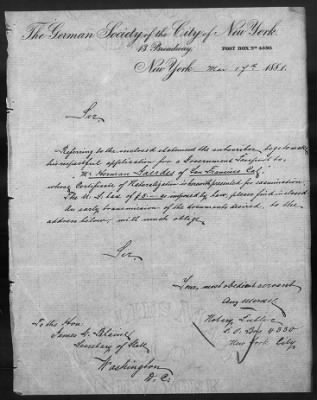 The German Society of the City of New York.
13 Broadway,
POST BOX Nº
New York Mar 17th 1881.
Sir
Referring to the enclosed statement the subscriber begs to make
his respectful application for a Government Passport to
Mr Herman of San Francisco Cal.
whose Certificate of Naturalization is herewith presented for examination.
The U. S. tax of $5.— imposed by law, please find inclosed
An early transmission of the document desired, to the
address below, will much oblige
Sir
Your most obedient servant
P. O. Box 4330
New York City.
To the Hon.
James G. Blaine
Secretary of State
Washington
D. C.